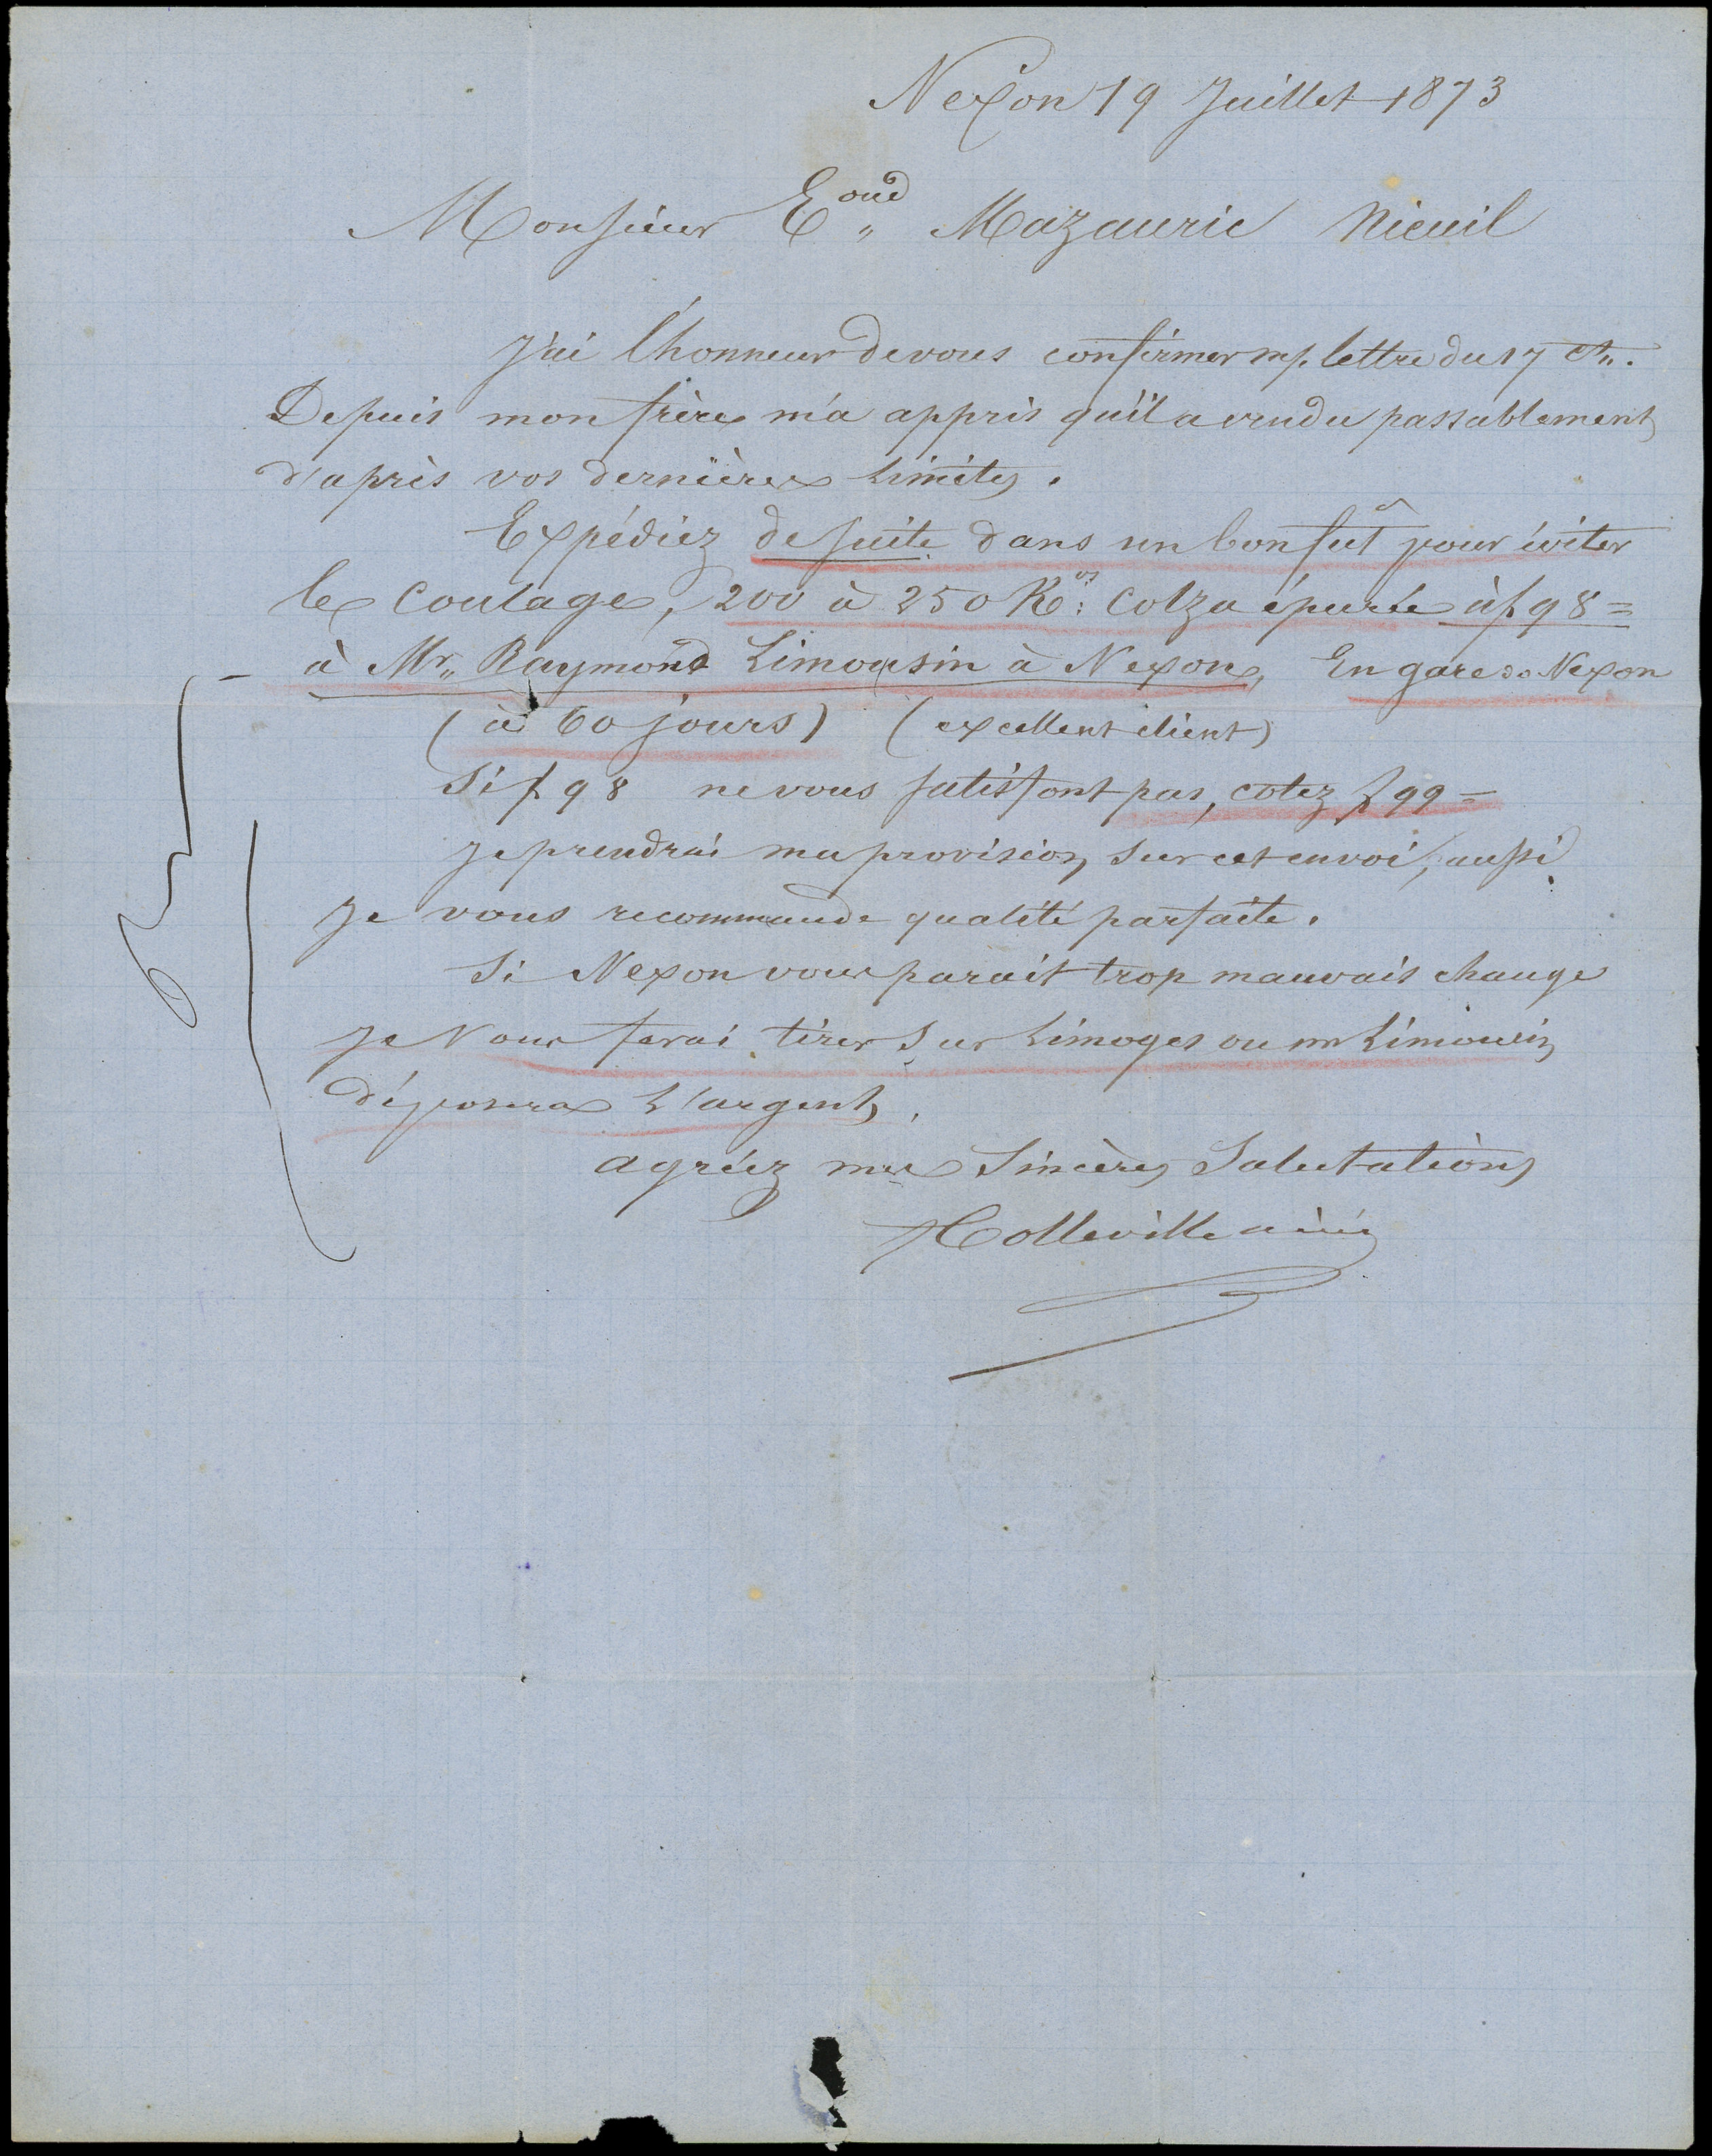 Nexon 19 Juillet 1873
Monsieur E^oud Mazauric Nieuil
J'ai l'honneur de vous confirmer m/. lettre du 17 Ct.
Depuis mon frère m'a appris qu'il a vendu passablement
d'après vos dernières limites.
Expédiez de suite dans un bon fût pour éviter
le Coulage, 200 à 250 Kos: Colza épurée à f 98=
à Mr. Raymond Limousin à Nexon, En gare de Nexon
(à 60 jours) (excellent client)
Si f 98 ne vous satisfont pas, cotez f 99=
Je prendrai ma provision sur cet envoi, aussi
Je vous recommande qualité parfaite.
Si Nexon vous parait trop mauvais change
Je vous ferai tirer sur Limoges ou mr Limousin
déposera l'argent.
agréez mes Sincères Salutations
Holleville ainé